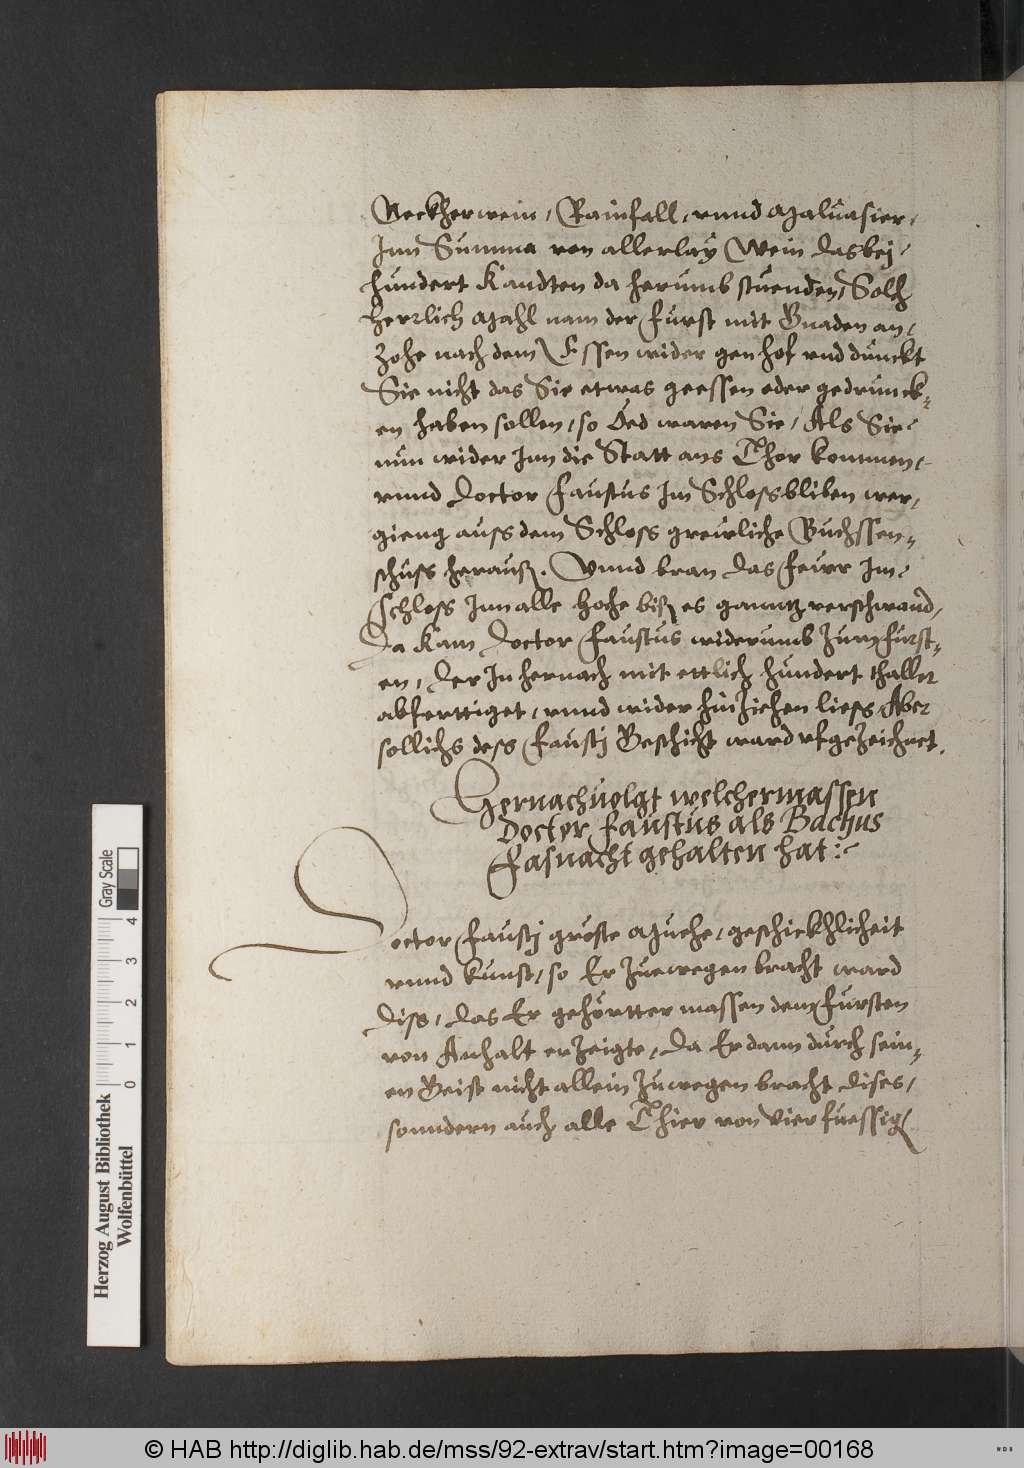 Neckherwein, Rainfall, vnnd Maluasier,
Inn Summa von allerlaÿ Wein das bej
hundert Kandten da herumb stuenden, Solch
herrlich Mahl nam der Fürst mit Gnaden an,
Zohe nach dem Essen wider gen hof vnd dunckt
Sie nicht das Sie etwas geessen oder gedrunck-
en haben sollen, so Oed waren Sie, Als Sie
nun wider Inn die Statt ans Thor kommen,
vnnd Doctor Faustus Im Schloss bliben wer,
gieng auss dem Schloss grewliche Buchssen-
schuss herauß. Vnnd bran das Fewr Im
Schloss Inn alle hoche biß es ganntz verschwand,
Da kam Doctor Faustus widerumb Zum Fürst-
en, Der In hernach mit ettlich hundert thaller
abferttiget, vnnd wider hin Ziehen liess, Aber
sollichs dess Faustj Geschicht ward vfgeZeichnet.
Hernachuolgt welchermassen
Doctor Faustus als Bachus
Fasnacht gehalten hat:
Doctor Faustj gröste Muehe, geschickhlicheit
vnnd kunst, so Er Zuewegen bracht ward
Diss, Das Er gehörtter massen dem Fürsten
von Anhalt erZeigte, Da Er dann durch sein-
en Geist nicht allein Zuwegen bracht dises,
sonndern auch alle Thier von vierfuessig
Gray Scale
4 3 2 1 0
Herzog August Bibliothek
Wolfenbüttel
© HAB http://diglib.hab.de/mss/92-extrav/start.htm?image=00168
WDB